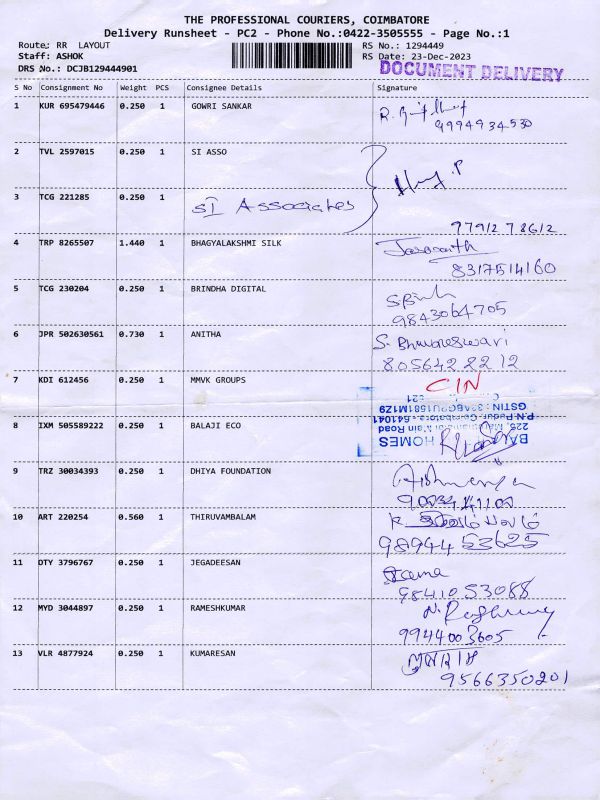 THE PROFESSIONAL COURIERS, COIMBATORE
Delivery Runsheet - PC2 - Phone No.:0422-3505555 - Page No.:1
Route: RR LAYOUT RS No.: 1294449
Staff: ASHOK RS Date: 23-Dec-2023
DRS No.: DCJB129444901 DOCUMENT DELIVERY
S No Consignment No Weight PCS Consignee Details Signature
1 KUR 695479446 0.250 1 GOWRI SANKAR
9994934530
2 TVL 2597015 0.250 1 SI ASSO
3 TCG 221285 0.250 1 SI Associates
77912 78612
4 TRP 8265507 1.440 1 BHAGYALAKSHMI SILK
8317514160
5 TCG 230204 0.250 1 BRINDHA DIGITAL
9843064705
6 JPR 502630561 0.730 1 ANITHA S. Bhuvaneswari
805642 22 12
7 KDI 612456 0.250 1 MMVK GROUPS CIN
8 IXM 505589222 0.250 1 BALAJI ECO
HOMES
225,
Main Road
P.N.Pudur, Coimbatore - 641041
GSTIN :
9 TRZ 30034393 0.250 1 DHIYA FOUNDATION
10 ART 220254 0.560 1 THIRUVAMBALAM
98944 53625
11 OTY 3796767 0.250 1 JEGADEESAN
98410 53088
12 MYD 3044897 0.250 1 RAMESHKUMAR
9944003605
13 VLR 4877924 0.250 1 KUMARESAN
9566350201